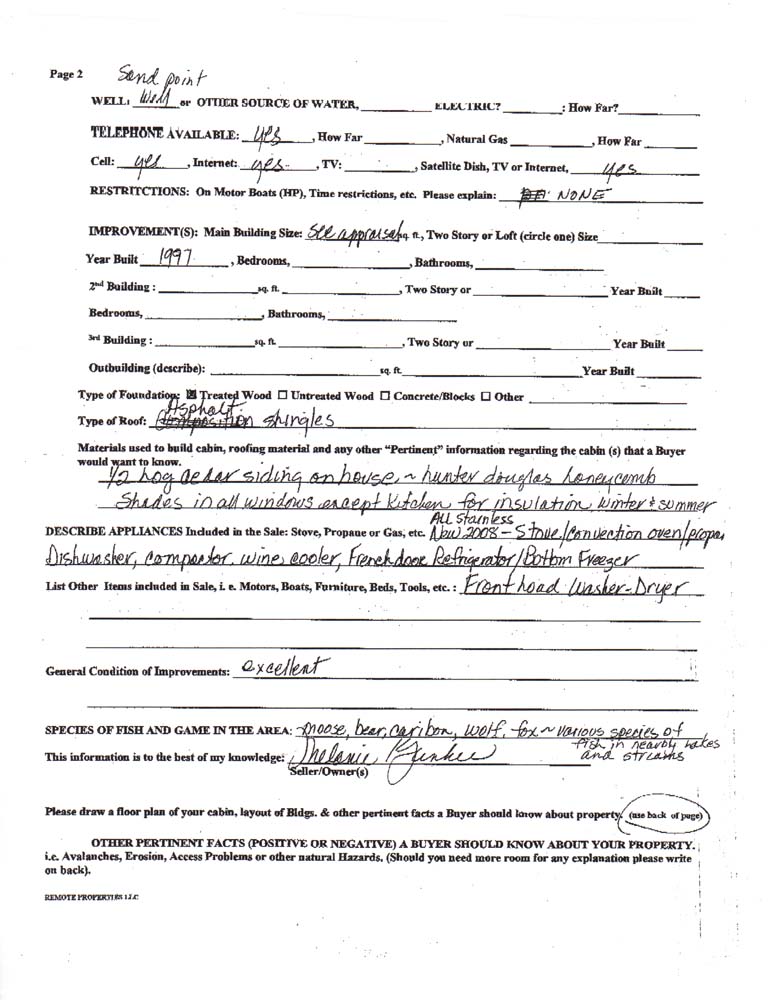 Page 2 Sand point
WELL: Well or OTHER SOURCE OF WATER, ____ ELECTRIC? ____: How Far? ____
TELEPHONE AVAILABLE: yes, How Far ____, Natural Gas ____, How Far ____
Cell: yes, Internet: yes, TV: ____, Satellite Dish, TV or Internet, yes
RESTRITCTIONS: On Motor Boats (HP), Time restrictions, etc. Please explain: NONE
IMPROVEMENT(S): Main Building Size: See appraisal sq ft., Two Story or Loft (circle one) Size ____
Year Built 1997, Bedrooms, ____, Bathrooms, ____
2nd Building : ____ sq. ft. ____, Two Story or ____ Year Built ____
Bedrooms, ____, Bathrooms, ____
3rd Building : ____ sq. ft. ____, Two Story or ____ Year Built ____
Outbuilding (describe): ____ sq. ft. ____ Year Built ____
Type of Foundation: ☒ Treated Wood ☐ Untreated Wood ☐ Concrete/Blocks ☐ Other ____
Asphalt
Type of Roof: Composition shingles
Materials used to build cabin, roofing material and any other “Pertinent” information regarding the cabin (s) that a Buyer
would want to know.
1/2 hog cedar siding on house, ~ hunter douglas honeycomb
Shades in all windows except kitchen for insulation, winter & summer
ALL Stainless
DESCRIBE APPLIANCES Included in the Sale: Stove, Propane or Gas, etc. New 2008 - Stove/Convection oven/propan
Dishwasher, compactor, wine cooler, French door Refrigerator/Bottom Freezer
List Other Items included in Sale, i. e. Motors, Boats, Furniture, Beds, Tools, etc. : Front load Washer-Dryer
General Condition of Improvements: excellent
SPECIES OF FISH AND GAME IN THE AREA: moose, bear, caribou, wolf, fox ~ various species of
fish in nearby lakes
and streams
This information is to the best of my knowledge: Melanie
Seller/Owner(s)
Please draw a floor plan of your cabin, layout of Bldgs. & other pertinent facts a Buyer should know about property. (use back of page)
OTHER PERTINENT FACTS (POSITIVE OR NEGATIVE) A BUYER SHOULD KNOW ABOUT YOUR PROPERTY.
i.e. Avalanches, Erosion, Access Problems or other natural Hazards. (Should you need more room for any explanation please write
on back).
REMOTE PROPERTIES LLC